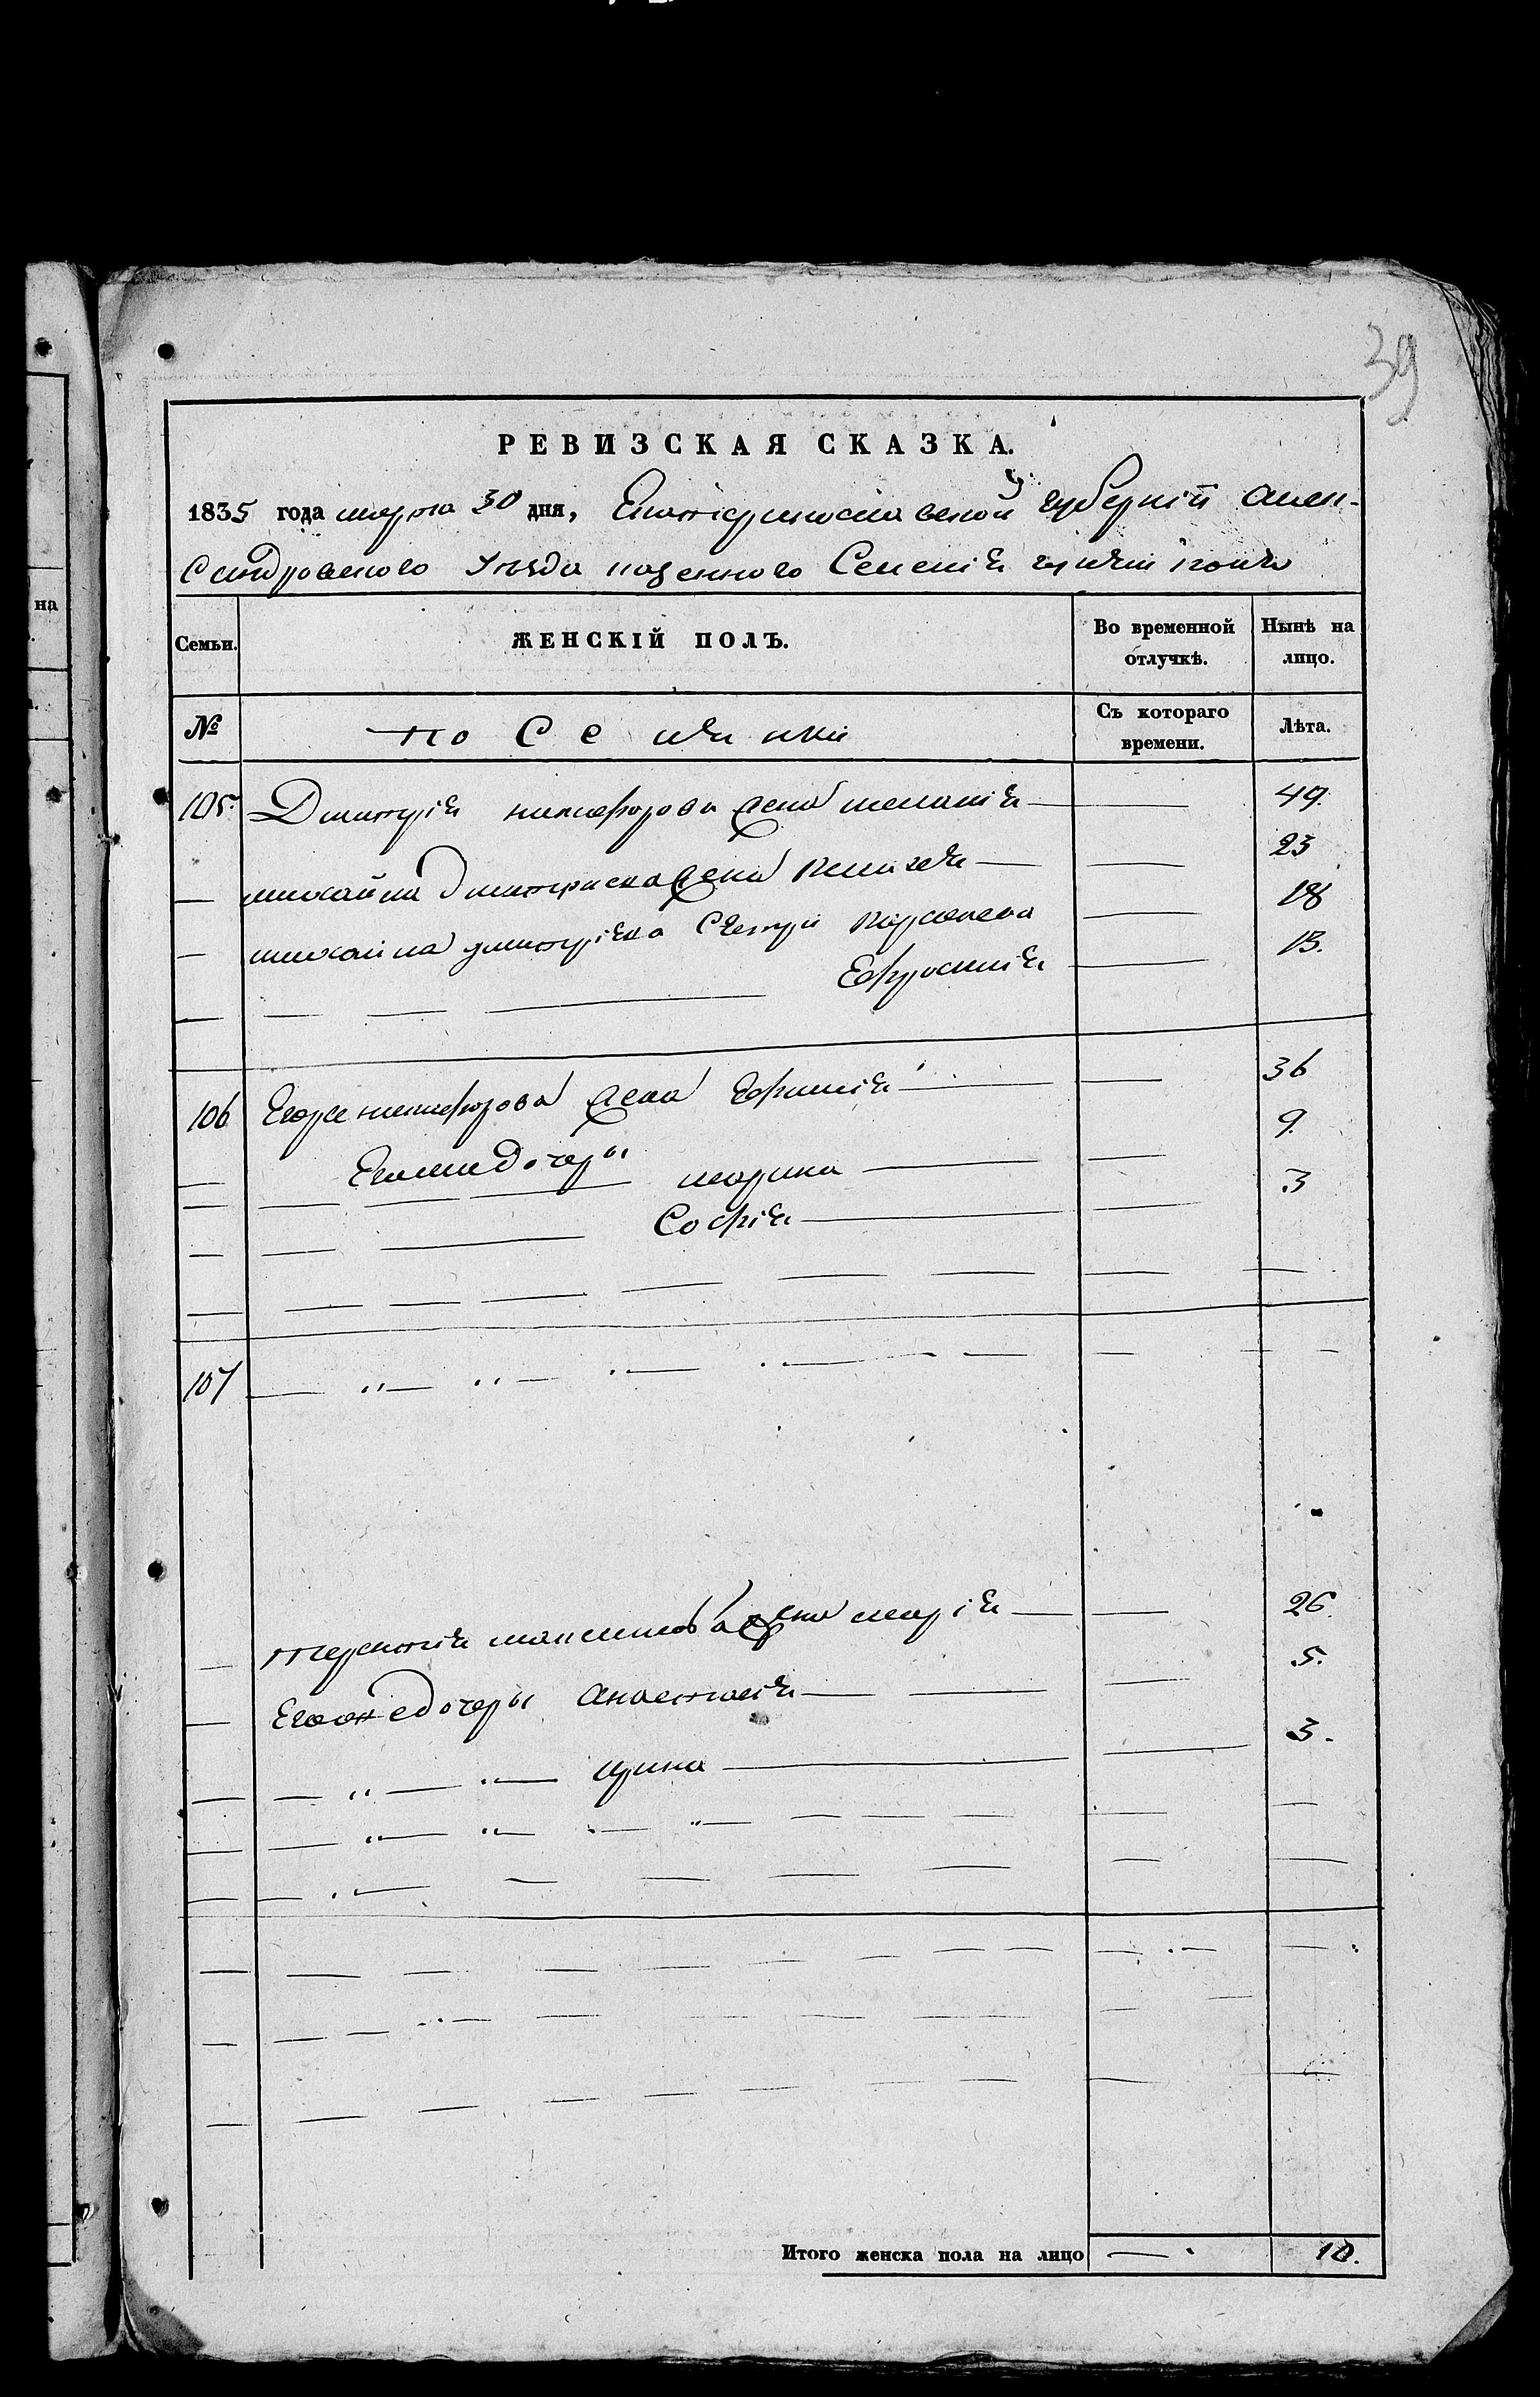 39
РЕВИЗСКАЯ СКАЗКА.
1835 года марта 30 дня, Екатеринославской губернїи Алек-
сандровского Уезда казенного Селенїя
Семьи. ЖЕНСКІЙ ПОЛЪ. Во временной отлучкѣ. Нынѣ на лицо.
№ Съ котораго времени. Лѣта.
105. Дмитрїя никифорова жена меланїя 49.
михайла Дмитриева жена 23
михайла дмитрїева сестри 18
Ефросинїя 13.
106 Егора никифорова жена Ефимїя 36
Егоже дочеры марина 9.
Софїя 3
107
терентїя максимова жена марїя 26.
Егоже дочеры Анастасїя 5.
ирина 3.
Итого женска пола на лицо 10.
на